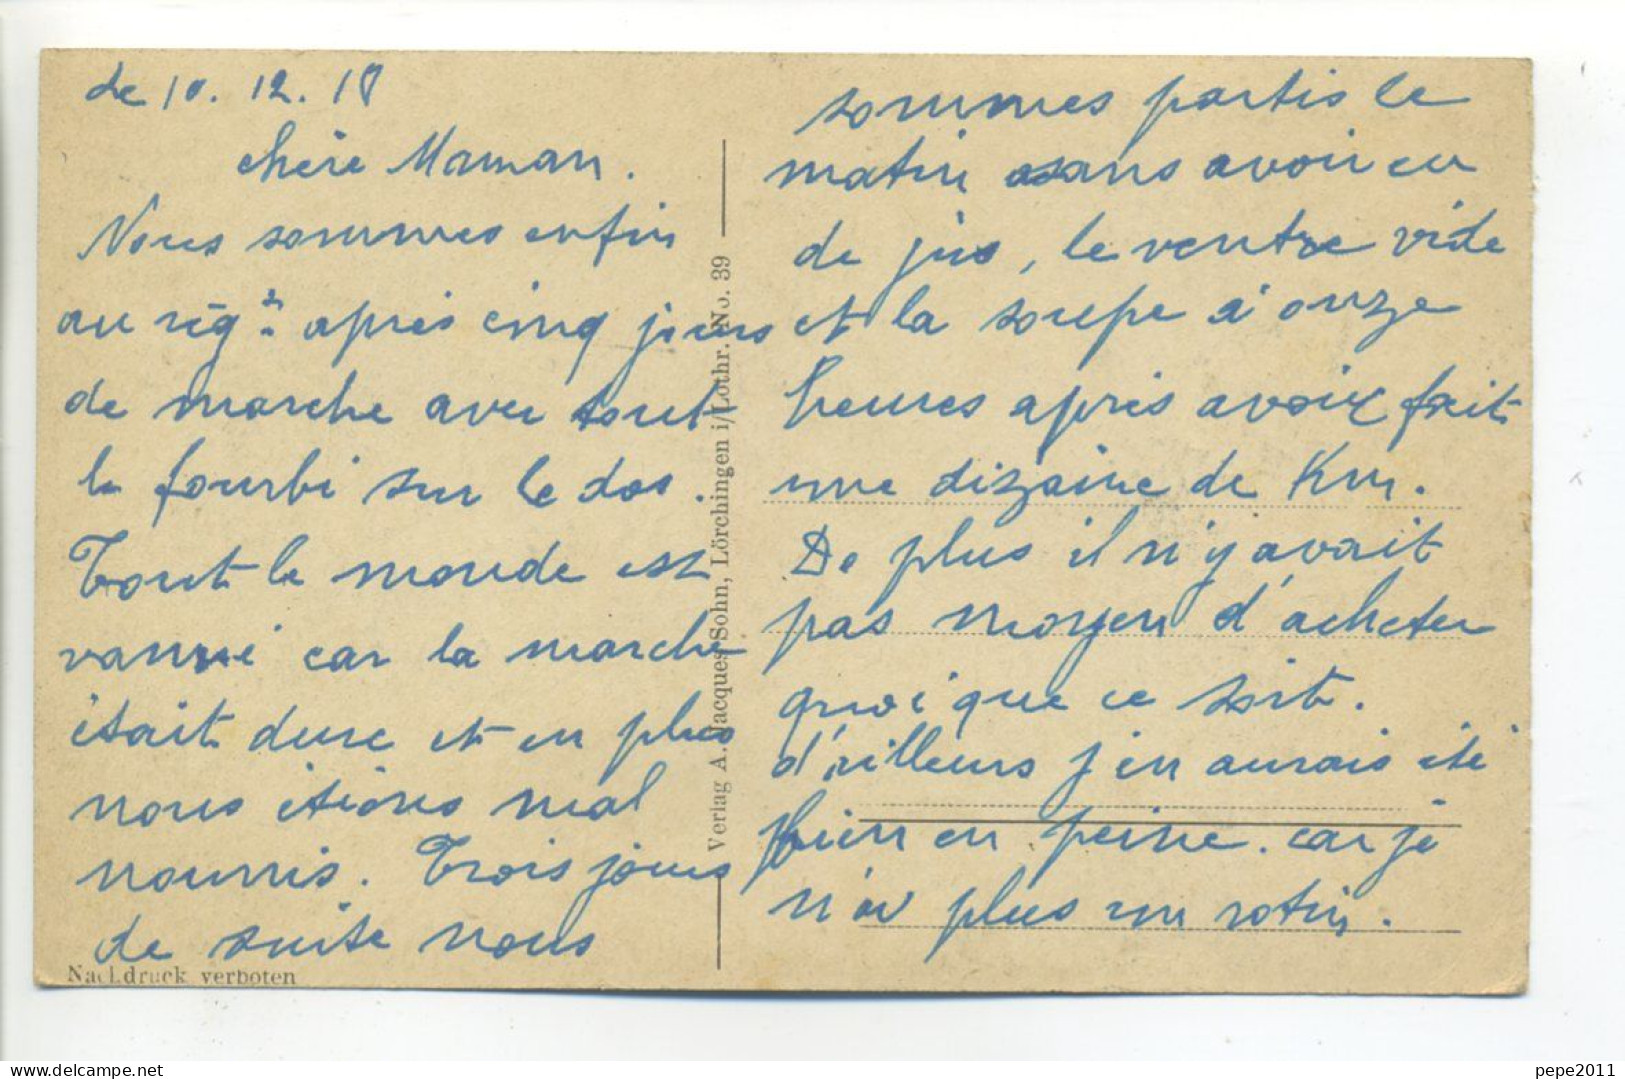 Le 10.12.18
chère Maman.
Nous sommes enfin
au rég.t après cinq jours
de marche avec tout
le fourbi sur le dos.
Tout le monde est
vanné car la marche
était dure et en plus
nous étions mal
nourris. Trois jours
de suite nous
Nachdruck verboten
Verlag A. Jacques Sohn, Lörchingen i/Lothr. No. 39
sommes partis le
matin sans avoir eu
de jus, le ventre vide
et la soupe à onze
heures après avoir fait
une dizaine de Km.
De plus il n'y avait
pas moyen d'acheter
quoi que ce soit.
d'ailleurs j'en aurais été
bien en peine. car je
n'ai plus un rotin.
pepe2011
delcampe.net